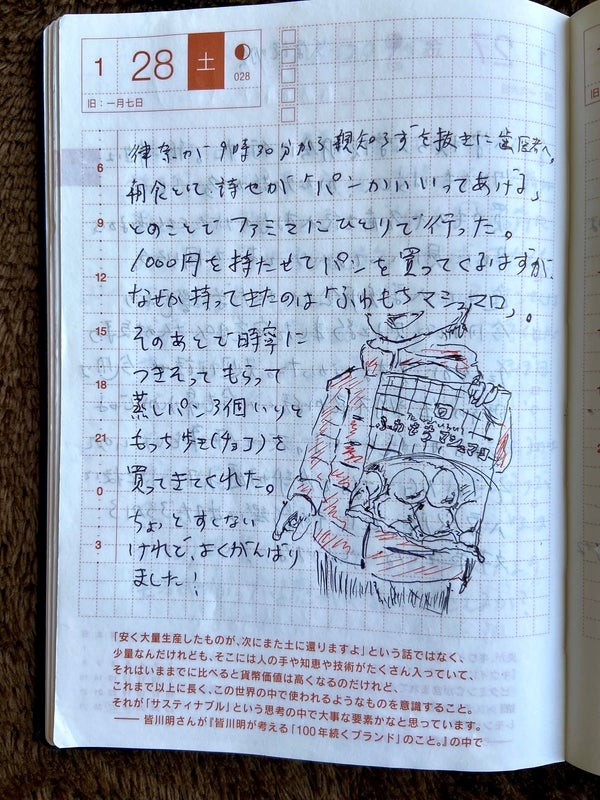 1 28 土
028
旧：一月七日
律奈が9時30分から親知らずを抜きに歯医者へ。
朝食として詩せが「パンかいいってあげる」
とのことでファミマにひとりで行った。
1000円を持たせてパンを買ってくるはずが、
なぜか持ってきたのは「ふわもちマシュマロ」。
そのあとで時寧に
つきそってもらって
蒸しパン3個いりと
もっち歩を(チョコ)を
買ってきてくれた。
ちょっとすくない
けれど、よくがんばり
ました！
6
9
12
15
18
21
0
3
ふわもち マシュマロ
「安く大量生産したものが、次にまた土に還りますよ」という話ではなく、
少量なんだけれども、そこには人の手や知恵や技術がたくさん入っていて、
それはいままでに比べると貨幣価値は高くなるのだけれど、
これまで以上に長く、この世界の中で使われるようなものを意識すること。
それが「サスティナブル」という思考の中で大事な要素かなと思っています。
── 皆川明さんが『皆川明が考える「100年続くブランド」のこと。』の中で